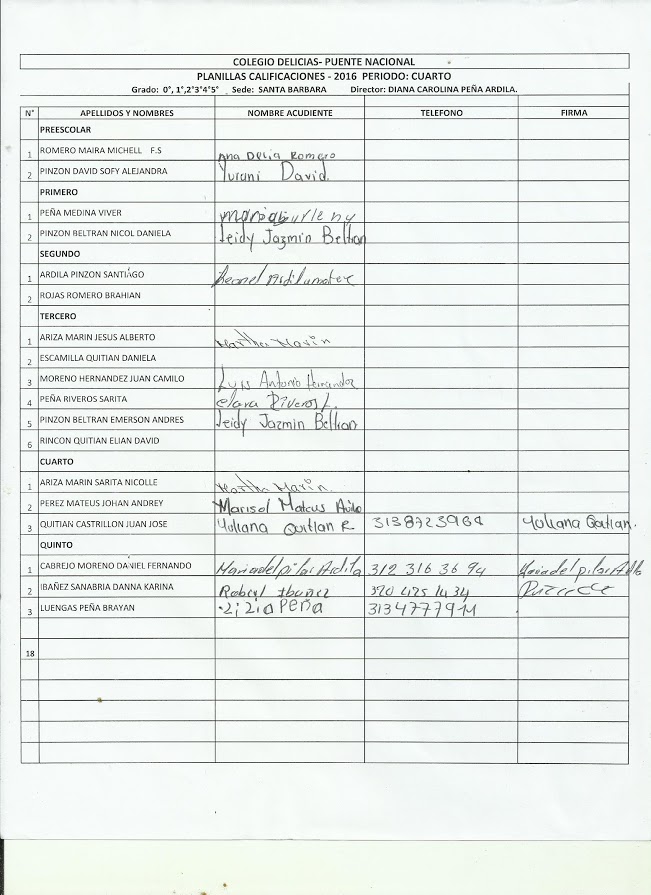 COLEGIO DELICIAS- PUENTE NACIONAL
PLANILLAS CALIFICACIONES - 2016 PERIODO: CUARTO
Grado: 0°, 1°,2°3°4°5° Sede: SANTA BARBARA Director: DIANA CAROLINA PEÑA ARDILA.
N° APELLIDOS Y NOMBRES NOMBRE ACUDIENTE TELEFONO FIRMA
PREESCOLAR
1 ROMERO MAIRA MICHELL F.S Ana Delia Romero
2 PINZON DAVID SOFY ALEJANDRA Yurani David.
PRIMERO
1 PEÑA MEDINA VIVER
2 PINZON BELTRAN NICOL DANIELA leidy Jazmin Beltran
SEGUNDO
1 ARDILA PINZON SANTIAGO
2 ROJAS ROMERO BRAHIAN
TERCERO
1 ARIZA MARIN JESUS ALBERTO Martha Marin
2 ESCAMILLA QUITIAN DANIELA
3 MORENO HERNANDEZ JUAN CAMILO Luis Antonio Hernandez
4 PEÑA RIVEROS SARITA clara Riveros L.
5 PINZON BELTRAN EMERSON ANDRES leidy Jazmin Beltran
6 RINCON QUITIAN ELIAN DAVID
CUARTO
1 ARIZA MARIN SARITA NICOLLE Martha Marin.
2 PEREZ MATEUS JOHAN ANDREY Marisol Mateus Avila
3 QUITIAN CASTRILLON JUAN JOSE Yuliana Quitian R. 3138723968 Yuliana Quitian.
QUINTO
1 CABREJO MORENO DANIEL FERNANDO Maria del pilar Ardila 312 316 36 94 Maria del pilar Ardila
2 IBAÑEZ SANABRIA DANNA KARINA Ibañez 320 425 14 34
3 LUENGAS PEÑA BRAYAN Peña 3134777911
18